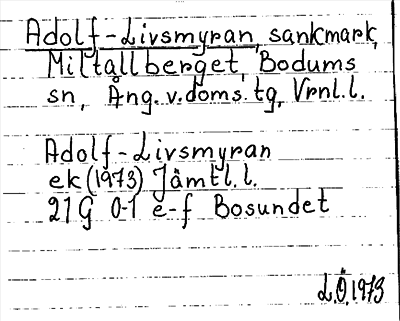 Adolf-Livsmyran, sankmark,
Miltallberget, Bodums
sn, Ång. v. doms. tg, Vrnl. l.
Adolf-Livsmyran
ek (1973) Jämtl. l.
21G 0-1 e-f Bosundet
L.Ö. 1973